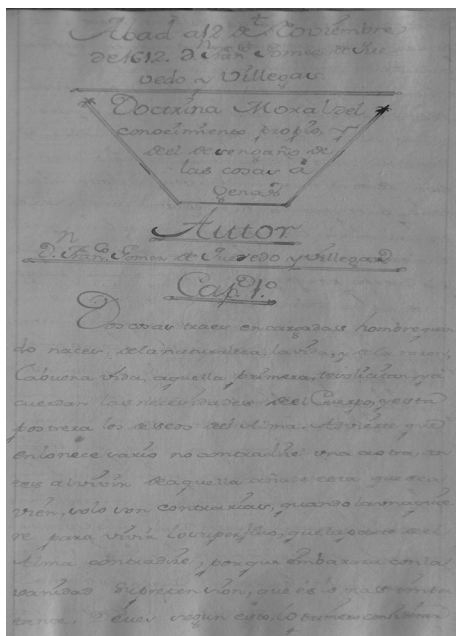 Abad a 12 de Noviembre
de 1612. Dn Fran Gomez de Que
vedo y Villegas
Doctrina Moral del
conocimiento propio, y
del desengaño de
las cosas a
genas
Autor
Dn Franco Gomez de Quevedo y Villegas
Capo 1o
Dos cosas traes encargadas hombre quan
do naces, de la naturaleza, la vida, y de la razon,
la buena vida, aquella primera, te solicitan y a
cuerdan las necesidades del Cuerpo, y esta
postrera los deseos del Alma. Advierte que
en lo necesario no contradice una a otra, an
tes al vivir de aquella añade esta que sea
bien, solo son contrarias, quando
se para vivir lo superfluo, que la parte del
Alma contradice, porque embaraza con la
vanidad
Pues segun esto, lo primero